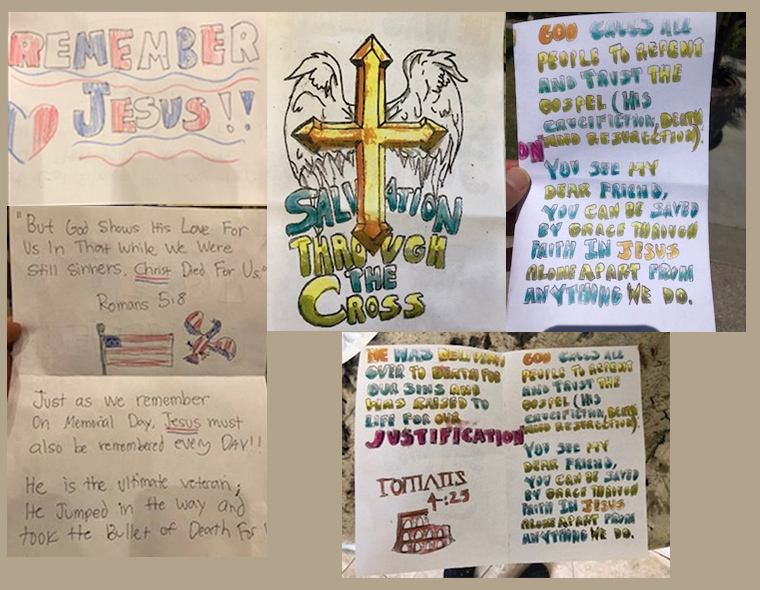 REMEMBER
JESUS!!
"But God Shows His Love For
Us In That While We Were
Still Sinners, Christ Died For Us."
Romans 5:8
Just as we remember
On Memorial Day, Jesus must
also be remembered every DAY!!
He is the ultimate veteran;
He Jumped in the way and
took the Bullet of Death For
SALVATION
THROUGH
THE
CROSS
GOD CALLS ALL
PEOPLE TO REPENT
AND TRUST THE
GOSPEL (HIS
CRUCIFICTION, DEATH
AND RESURECTION).
ON
YOU SEE MY
DEAR FRIEND,
YOU CAN BE SAVED
BY GRACE THROUGH
FAITH IN JESUS
ALONE APART FROM
ANYTHING WE DO.
HE WAS DELIVERED
OVER TO DEATH FOR
OUR SINS AND
WAS RAISED TO
LIFE FOR OUR
JUSTIFICATION
romans
4:25
GOD CALLS ALL
PEOPLE TO REPENT
AND TRUST THE
GOSPEL (HIS
CRUCIFICTION, DEATH
AND RESURECTION).
YOU SEE MY
DEAR FRIEND,
YOU CAN BE SAVED
BY GRACE THROUGH
FAITH IN JESUS
ALONE APART FROM
ANYTHING WE DO.